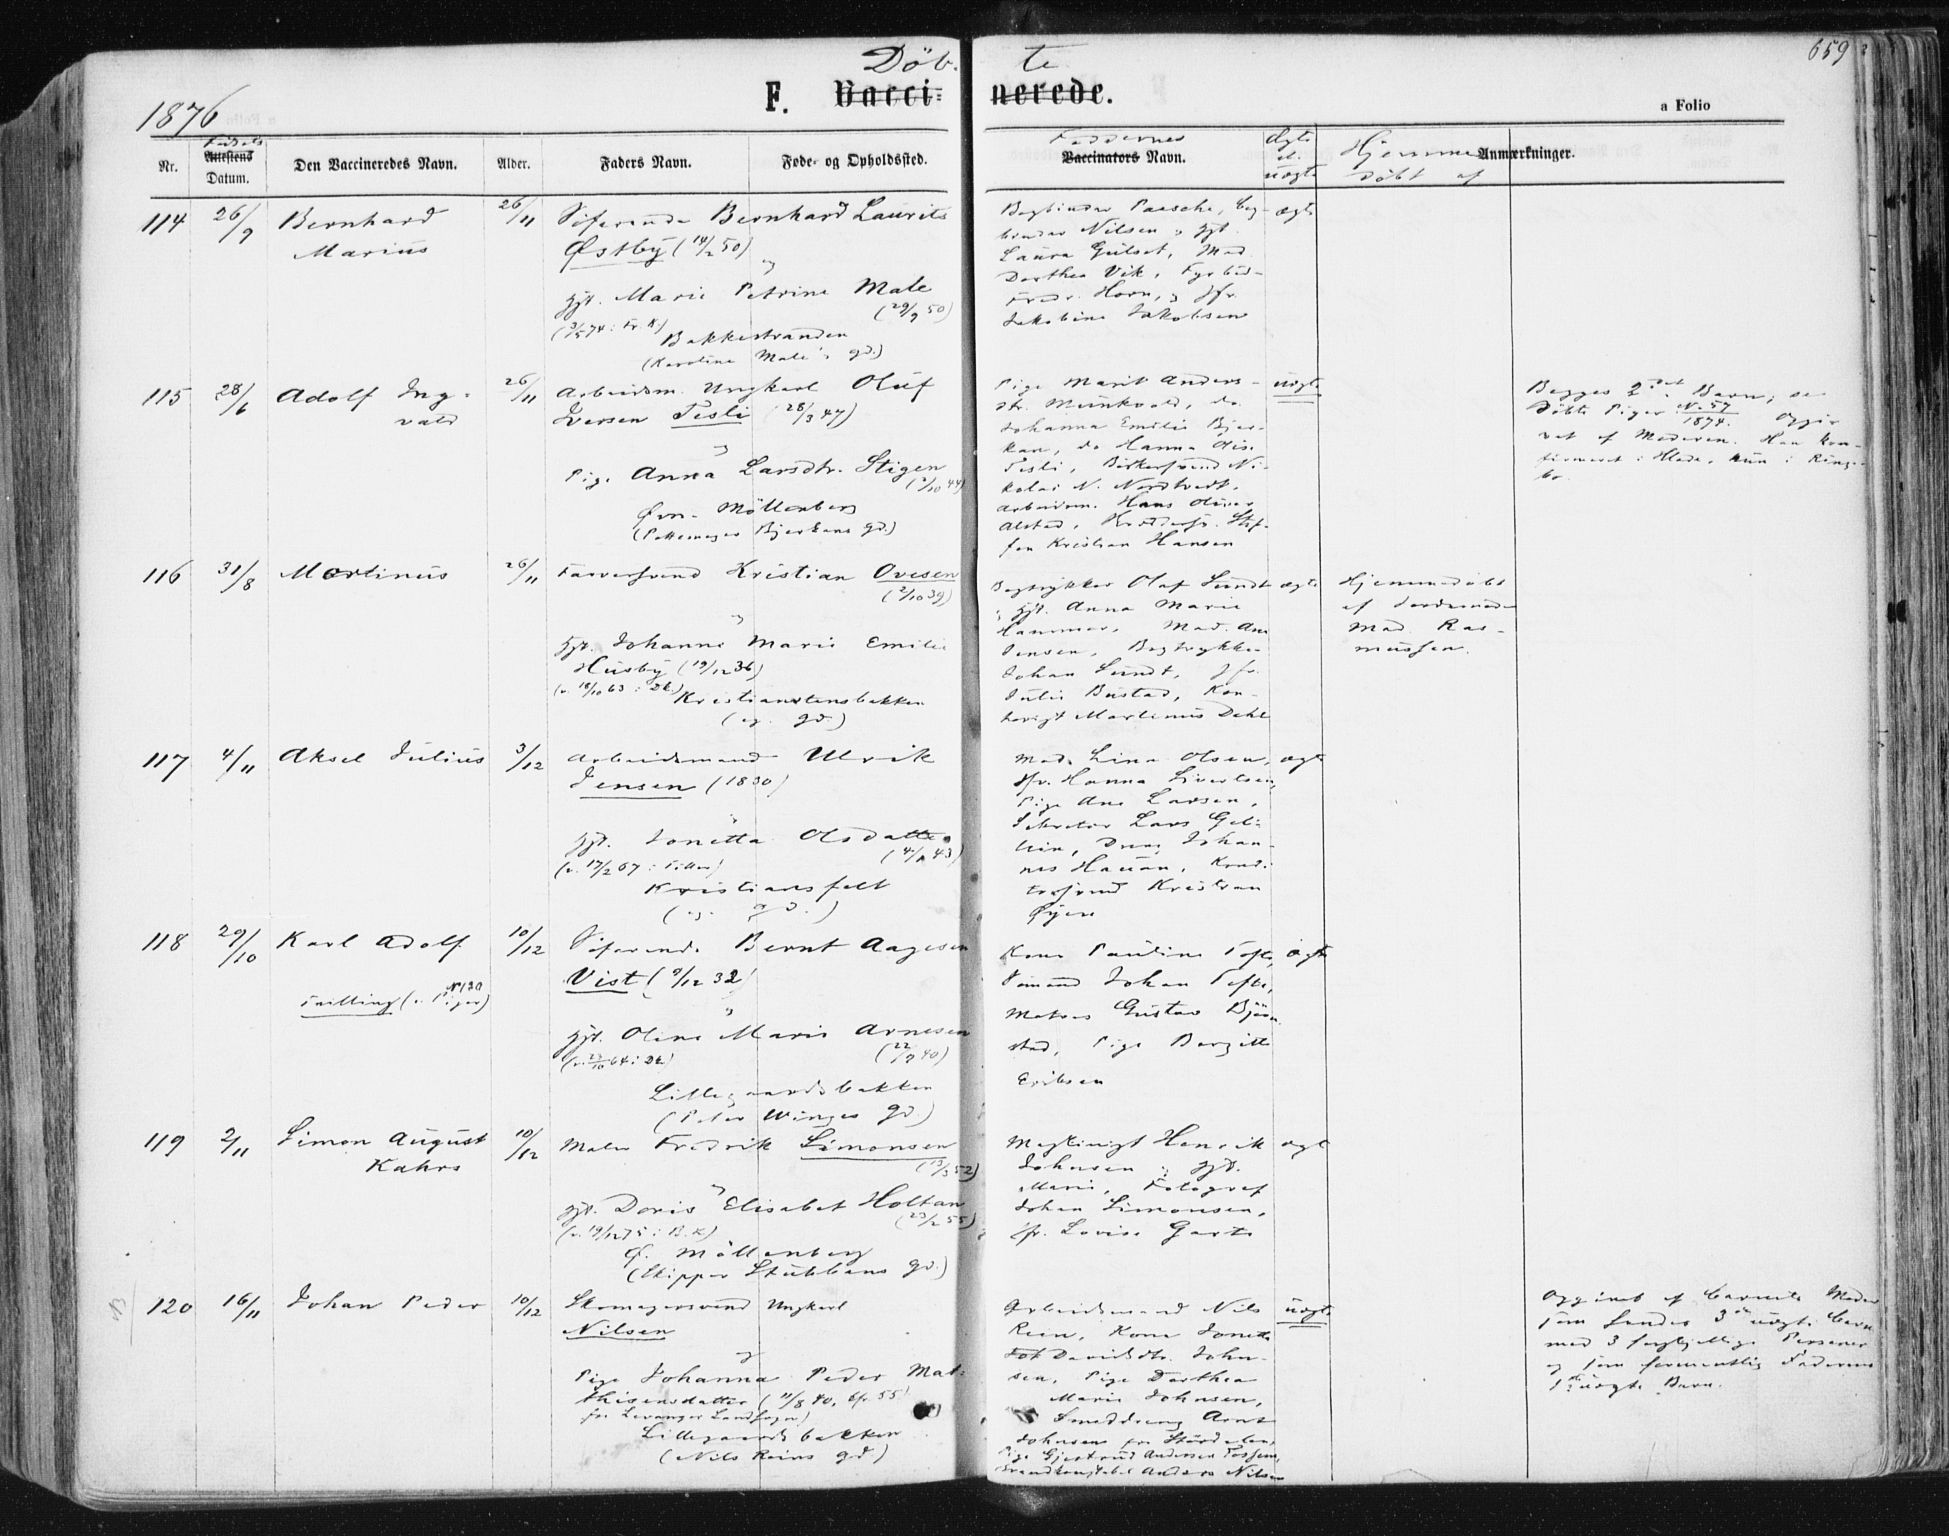 Döb. te
659
1876
F. Vacci= nerede.
a Folio
Fødsels
Nr.
Attestens Datum.
Den Vaccineredes Navn.
Alder.
Faders Navn.
Føde- og Opholdssted.
Faddernes
Vaccinators Navn.
Ægte el. uægte
Hjemme døbt af
Anmærkninger.
114 26/9 Bernhard 26/11 Søfarende Bernhard Laurits
Marius Østby (14/2 50)
gjt. Marie Petrine Male
(29/9 50)
Bakkestranden
(Karoline Male's gd.)
Bogbinder Paasche, Bog- ægte
binder Nilsen & gjt.
Laura Gulset, Mad.
Dorthea Vik,
Horn, & Jfr.
Jakobine Jakobsen
115 28/6 Adolf Ing- 26/11 Arbeidsm. Ungkarl Oluf
vald Iversen Tesli (28/3 47)
Pige Anna Larsdtr. Stigen
(2/10 44)
Øvr. Möllenberg
(Pottemager Bjerkans gd.)
Pige Marit Anders- uægte
dtr. Munkvold, do
Johanna Emilie Bjer-
kan, do Hanna Olis.
Tesli, Bødkersvend Ni-
kolai N. Nordtvedt,
Arbeidsm. Hans Oliver
Alstad, Stef-
fen Kristian Hansen
Begges 2det Barn, se
Døbte Piger No 57
1874. Opgi-
vet af Moderen. Han kon-
firmeret i Hlade, hun i Ringe-
bo.
116 31/8 Martinus 26/11 Farversvend Kristian Ovesen
(2/10 39)
gjt. Johanne Marie Emilie
Husby (19/12 36)
(v. 18/10 63 i Dk.) Kristianstensbakken
(eg. gd.)
Bogtrykker Olaf Sundt ægte
& gjt. Anna Marie
Hammer, Mad. Ane
Jensen, Bogtrykker
Johan Sundt, Jfr.
Julie Bustad, Kon-
torist Martinus Dahl
Hjemmedøbt
af Jordemod-
Mad. Ras-
mussen.
117 4/11 Aksel Julius 3/12 Arbeidsmand Ulrik
Jensen (1830)
gjt. Jonetta Olsdatter
(4/1 43)
(v. 17/2 67 i Tiller)
Kristiansfelt
(eg. gd.)
Mad. Lina Olsen, ægte
Jfr. Hanna Sivertsen,
Pige Ane Larsen,
Sekretær Lars Gel-
lein, Dreng Johan-
nes Hauan, Kondi-
torsvend Kristian
Øyen
118 29/10 Karl Adolf 10/12 Søfarende Bernt Aagesen
Vist (9/12 32)
No 120
Tvilling (v. Piger)
gjt. Oline Marie Arnesen
(v. 23/10 64 i Dk.) (22/9 40)
Lillegaardsbakken
(Peter Winges gd)
Kone Pauline Tofte, ægte
Sømand Johan Tofte,
Matros Gustav Bjørn-
stad, Pige Bergitte
Eriksen
119 2/11 Simon August 10/12 Maler Fredrik Simonsen
Kahrs (13/3 52)
gjt. Doris Elisabet Holtan
(v. 19/12 75 i B.K.) (23/2 55)
Ø. Möllenberg
(Skipper Stubbans gd.)
Henrik ægte
Johnsen & gjt.
Marie, Fotograf
Johan Simonsen,
Jfr. Lovise Garts
120 16/11 Johan Peder 10/12 Skomagersvend Ungkarl
Nilsen
Pige Johanna Peder Mat-
thisensdatter (11/8 40, 55)
fra Levanger Landsogn)
Lillegaardsbakken
(Nils Reins gd)
Arbeidsmand Nils uægte
Rein, Kone Jonette
Davidsdtr. John-
sen, Pige Dorthea
Marie Johnsen,
Smeddreng Arnt
Johnsen fra Stördalen,
Pige Gjertrud Andersen Fossem,
Brandkonstabel Anders Nilsen
Opgivet af Barnets Moder
som hendes 3die uægte Barn
med 3 forskjellige Personer
og som formentlig Faderens
1ste uægte Barn.